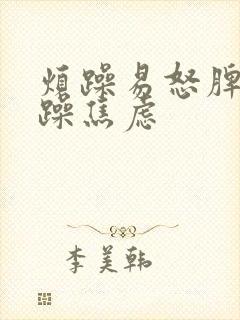 烦躁易怒脾
躁焦虑
李美韩